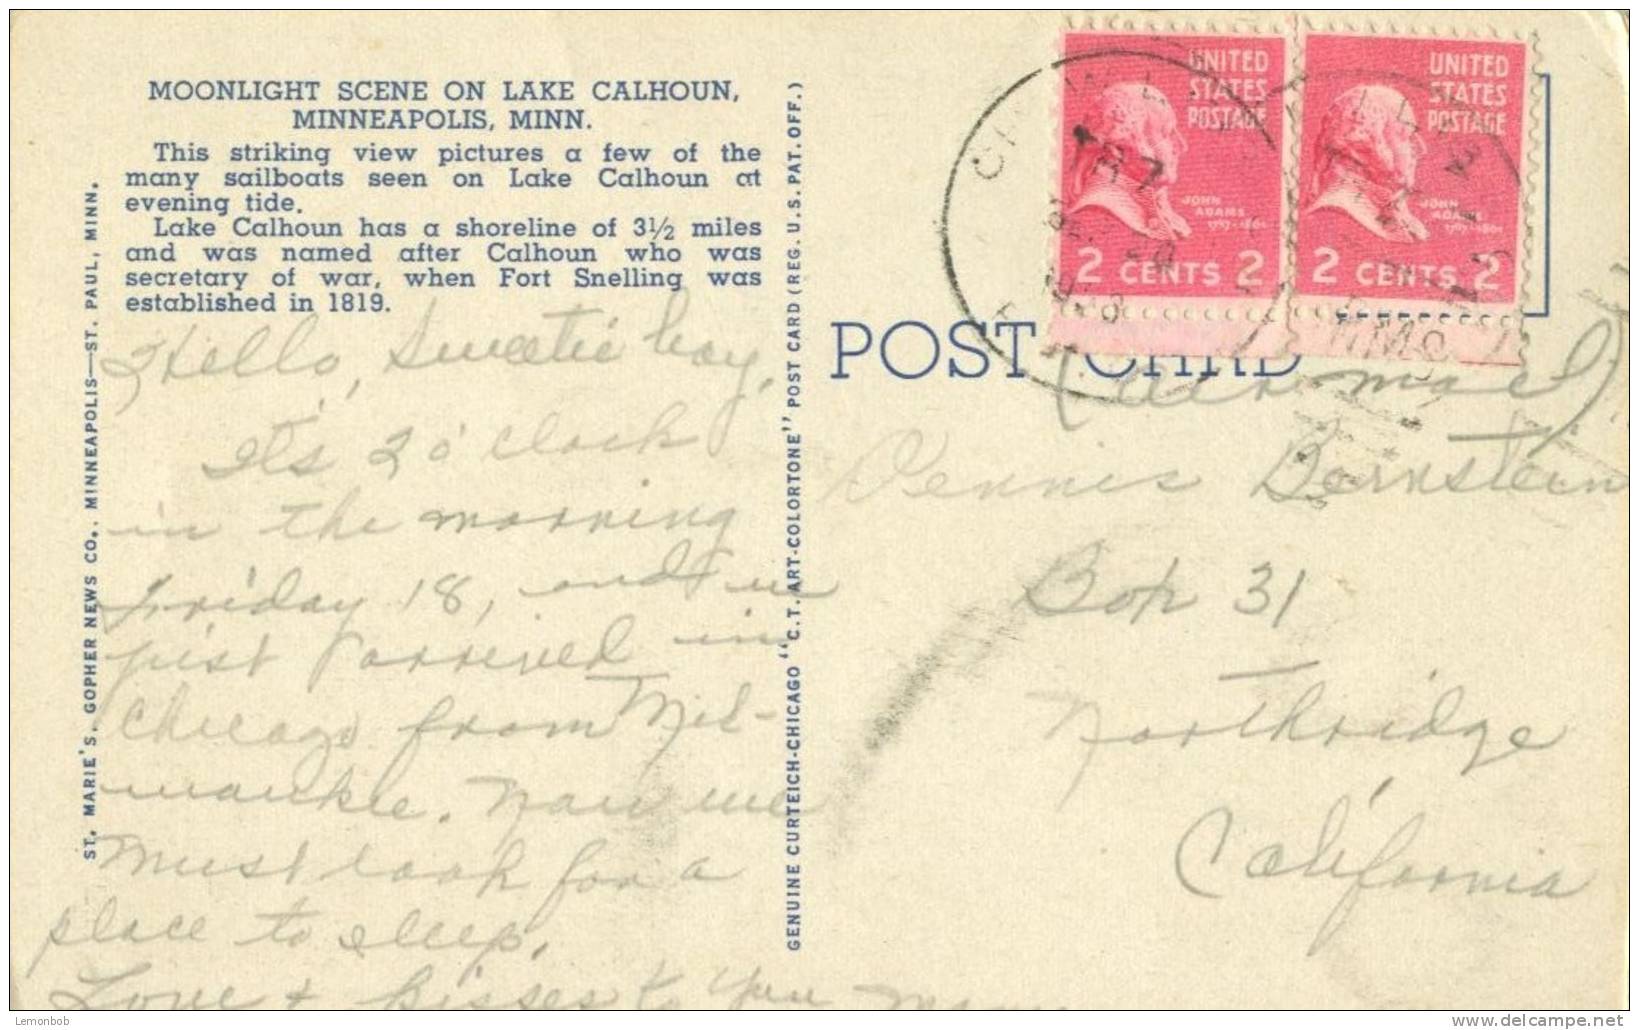 MOONLIGHT SCENE ON LAKE CALHOUN,
MINNEAPOLIS, MINN.
This striking view pictures a few of the
many sailboats seen on Lake Calhoun at
evening tide.
Lake Calhoun has a shoreline of 3½ miles
and was named after Calhoun who was
secretary of war, when Fort Snelling was
established in 1819.
Hello, Sweetie boy,
It's 2 o'clock
in the morning
Friday 18, and we
just arrived in
Chicago from Mil-
waukee. Now we
must look for a
place to sleep.
Love + kisses to you
ST. MARIE'S. GOPHER NEWS CO., MINNEAPOLIS—ST. PAUL, MINN.
GENUINE CURTEICH-CHICAGO "C.T. ART-COLORTONE" POST CARD (REG. U.S. PAT. OFF.)
UNITED
STATES
POSTAGE
JOHN
ADAMS
1797-1801
2 CENTS 2
UNITED
STATES
POSTAGE
JOHN
ADAMS
1797-1801
2 CENTS 2
POST CARD
(air mail)
Dennis Bernstein
Box 31
Northridge
California
Lemonbob
delcampe.net